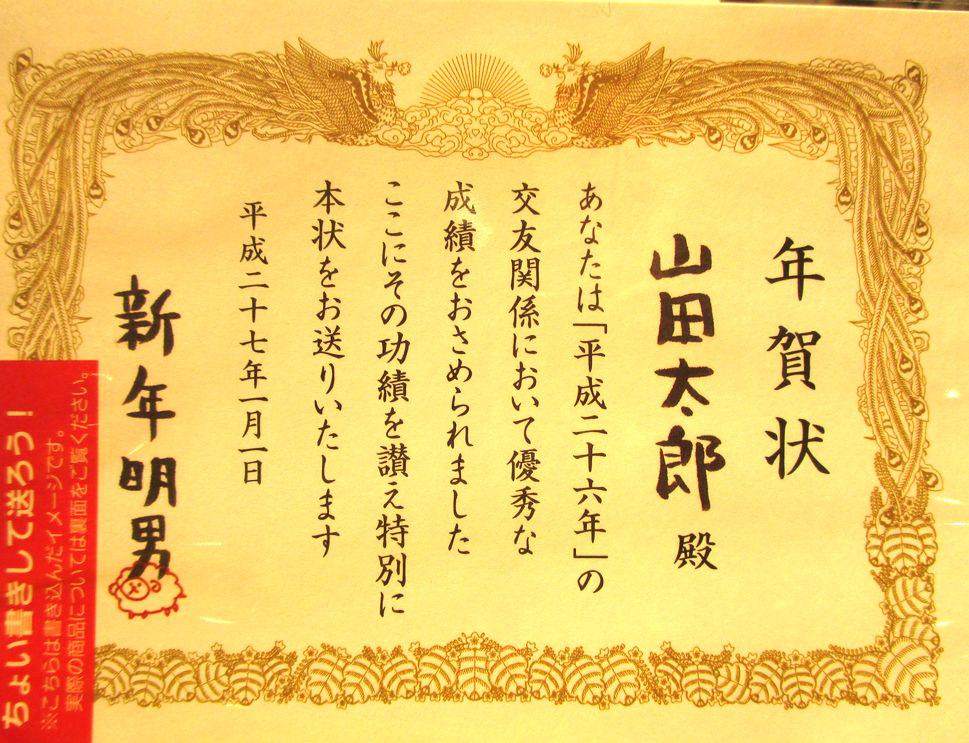 年賀状
山田太郎 殿
あなたは「平成二十六年」の
交友関係において優秀な
成績をおさめられました
ここにその功績を讃え特別に
本状をお送りいたします
平成二十七年一月一日
新年明男
ちょい書きして送ろう！
※こちらは書き込んだイメージです。
実際の商品については裏面をご覧ください。